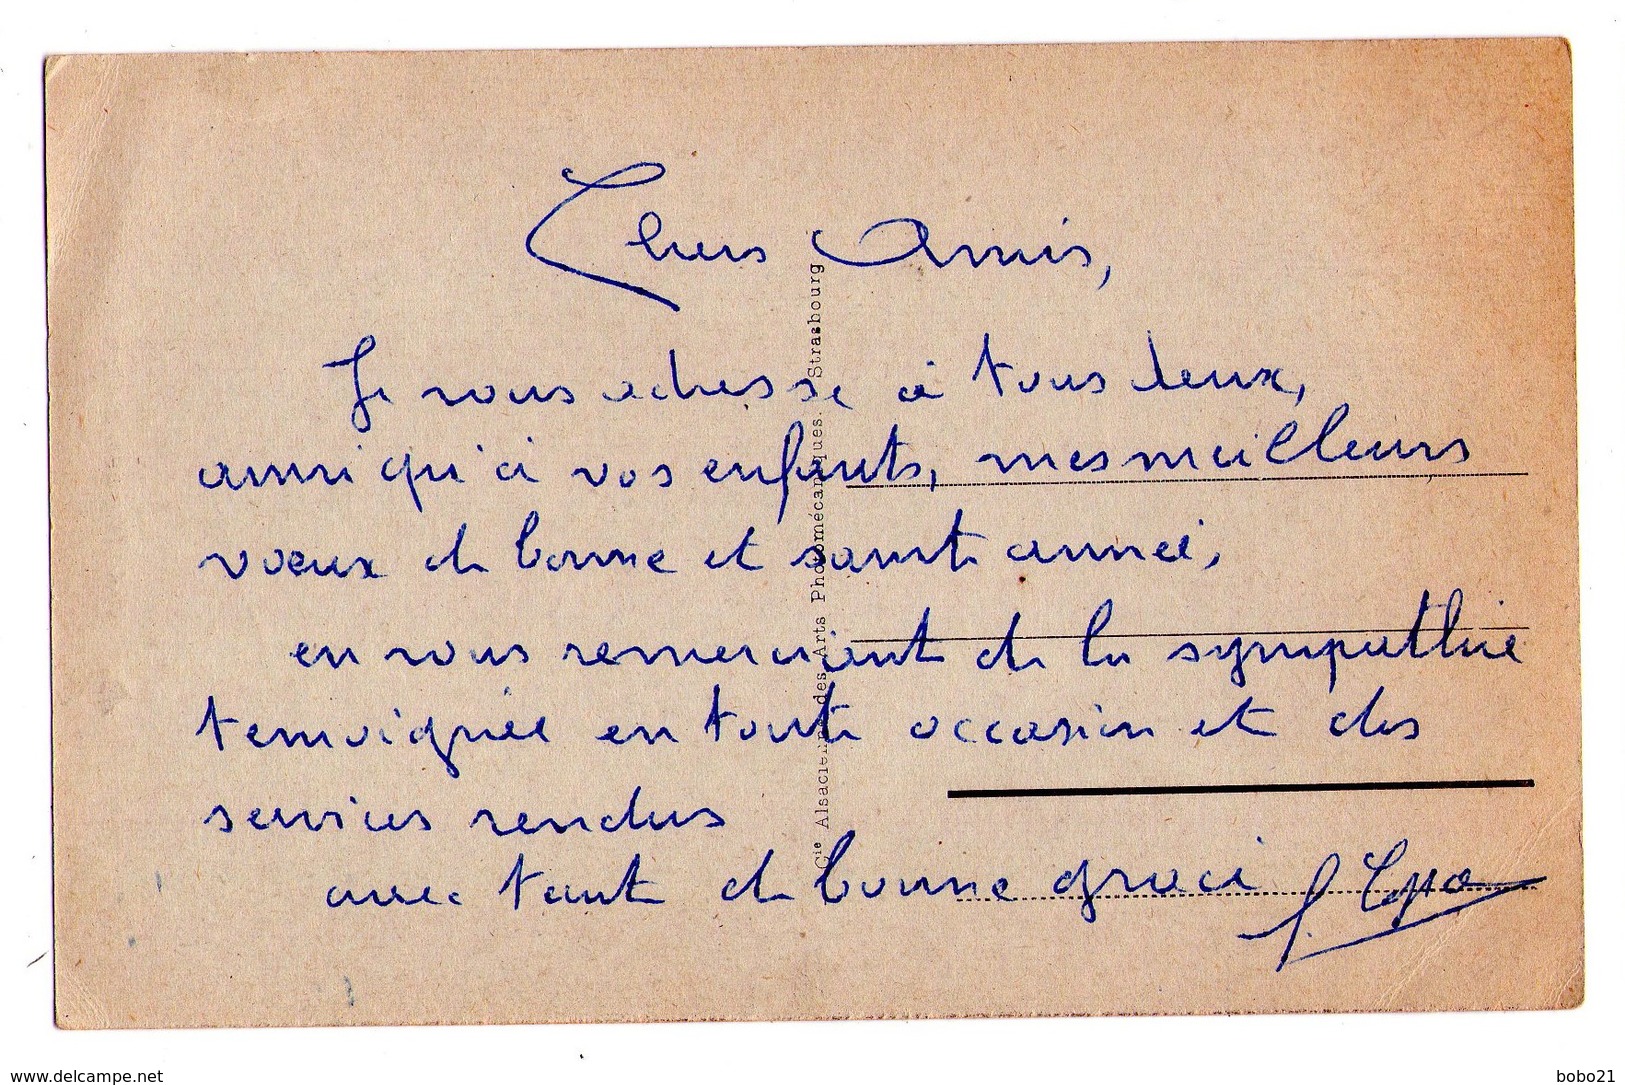 Chers Amis,
Je vous adresse à tous deux,
ainsi qu'à vos enfants, mes meilleurs
voeux de bonne et sainte année,
en vous remerciant de la sympathie
temoignée en toute occasion et des
services rendus
avec tant de bonne grace
Cie Alsacienne des Arts Photomécaniques. Strasbourg
www.delcampe.net
bobo21